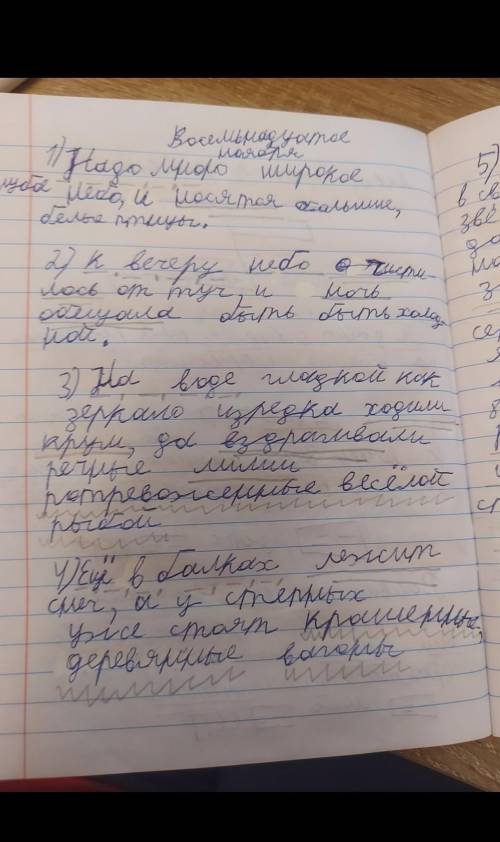 Восемнадцатое
ноября
1) Надо широкое
небо, и носятся большие,
белые птицы.
2) К вечеру небо очисти-
лось от туч, и ночь
обещала быть быть холод
ной.
3) На воде гладкой как
зеркало изредка ходили
круги, да вздрагивали
речные лилии
потревоженные весёлой
рыбой
4) Ещё в балках лежит
снег, а у степных
уже стоят крашенные,
деревянные вагоны
5)
в св
звё
да
на
з
се